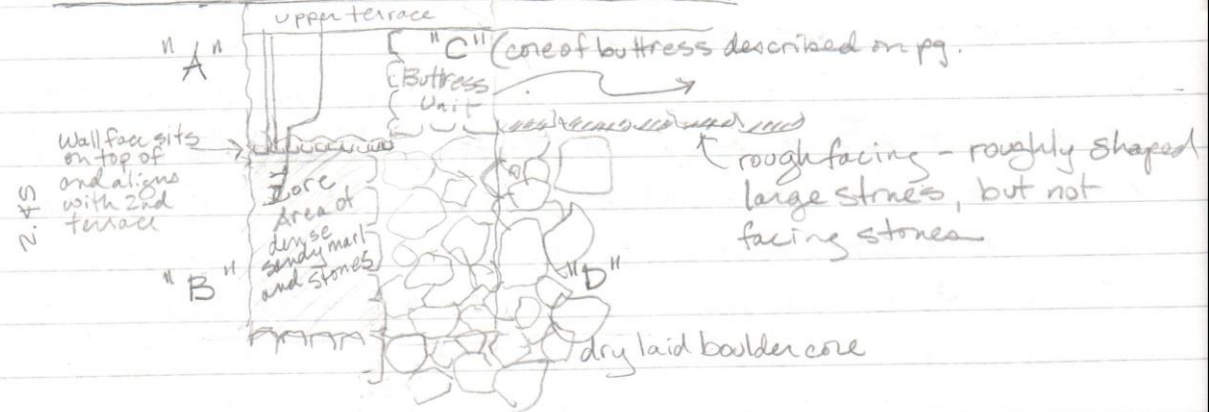 upper terrace
"A"
"C" (core of buttress described on pg.
Buttress
Unit
Wall face sits
on top of
and aligns
with 2nd
terrace
rough facing - roughly shaped
large stones, but not
facing stones
Core
Area of
dense
sandy marl
and stones
"B"
"D"
dry laid boulder core